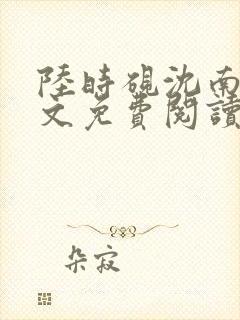 陸時硯沈南
文免費閱讀
朵寂